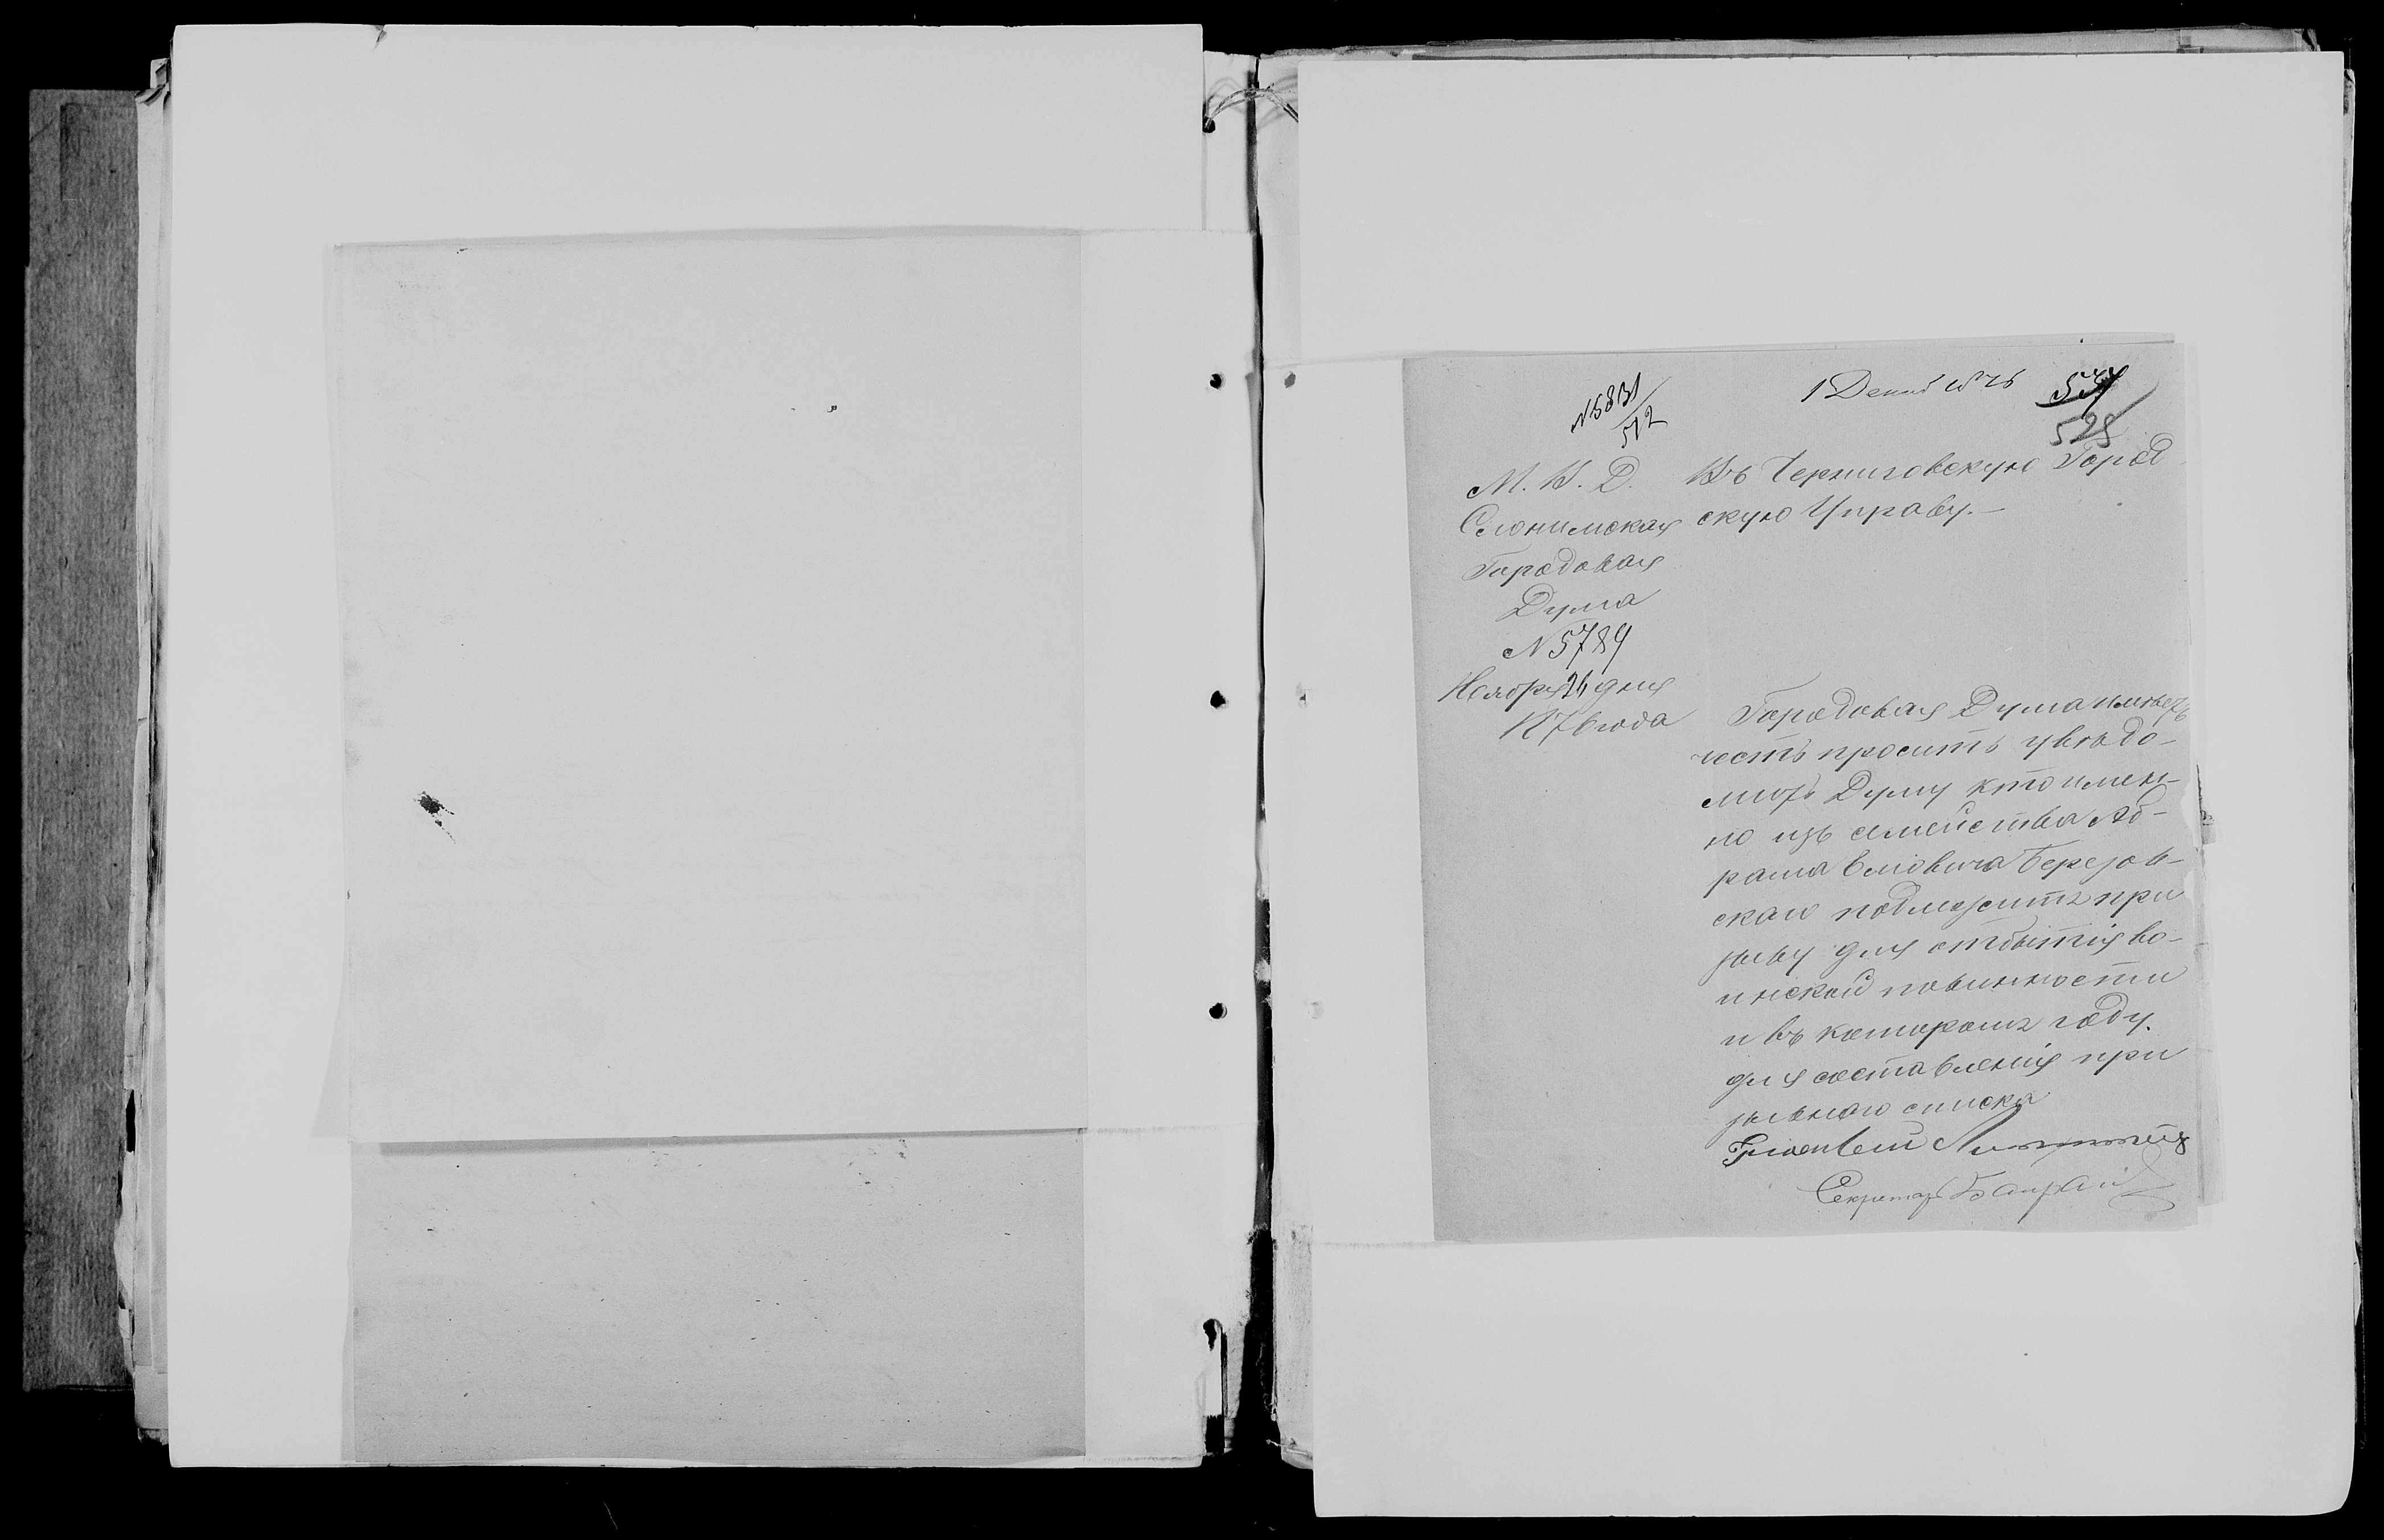 1 Декаб 1876
№5831/512
528
М. В. Д.
Слонимская
Городовая
Дума
№5789
Ноября 26 дня
1876 года
Въ Черниговскую Город
скую Управу.—
Городовая Дума имѣетъ
честь просить увѣдо-
мить Думу кто имен-
но изъ семейства Аб-
рама Березов-
скаго подлежитъ при
зыву для отбытія во-
инской повинности
и въ которомъ году.
для составленія при
зывнаго списка
Секретарь